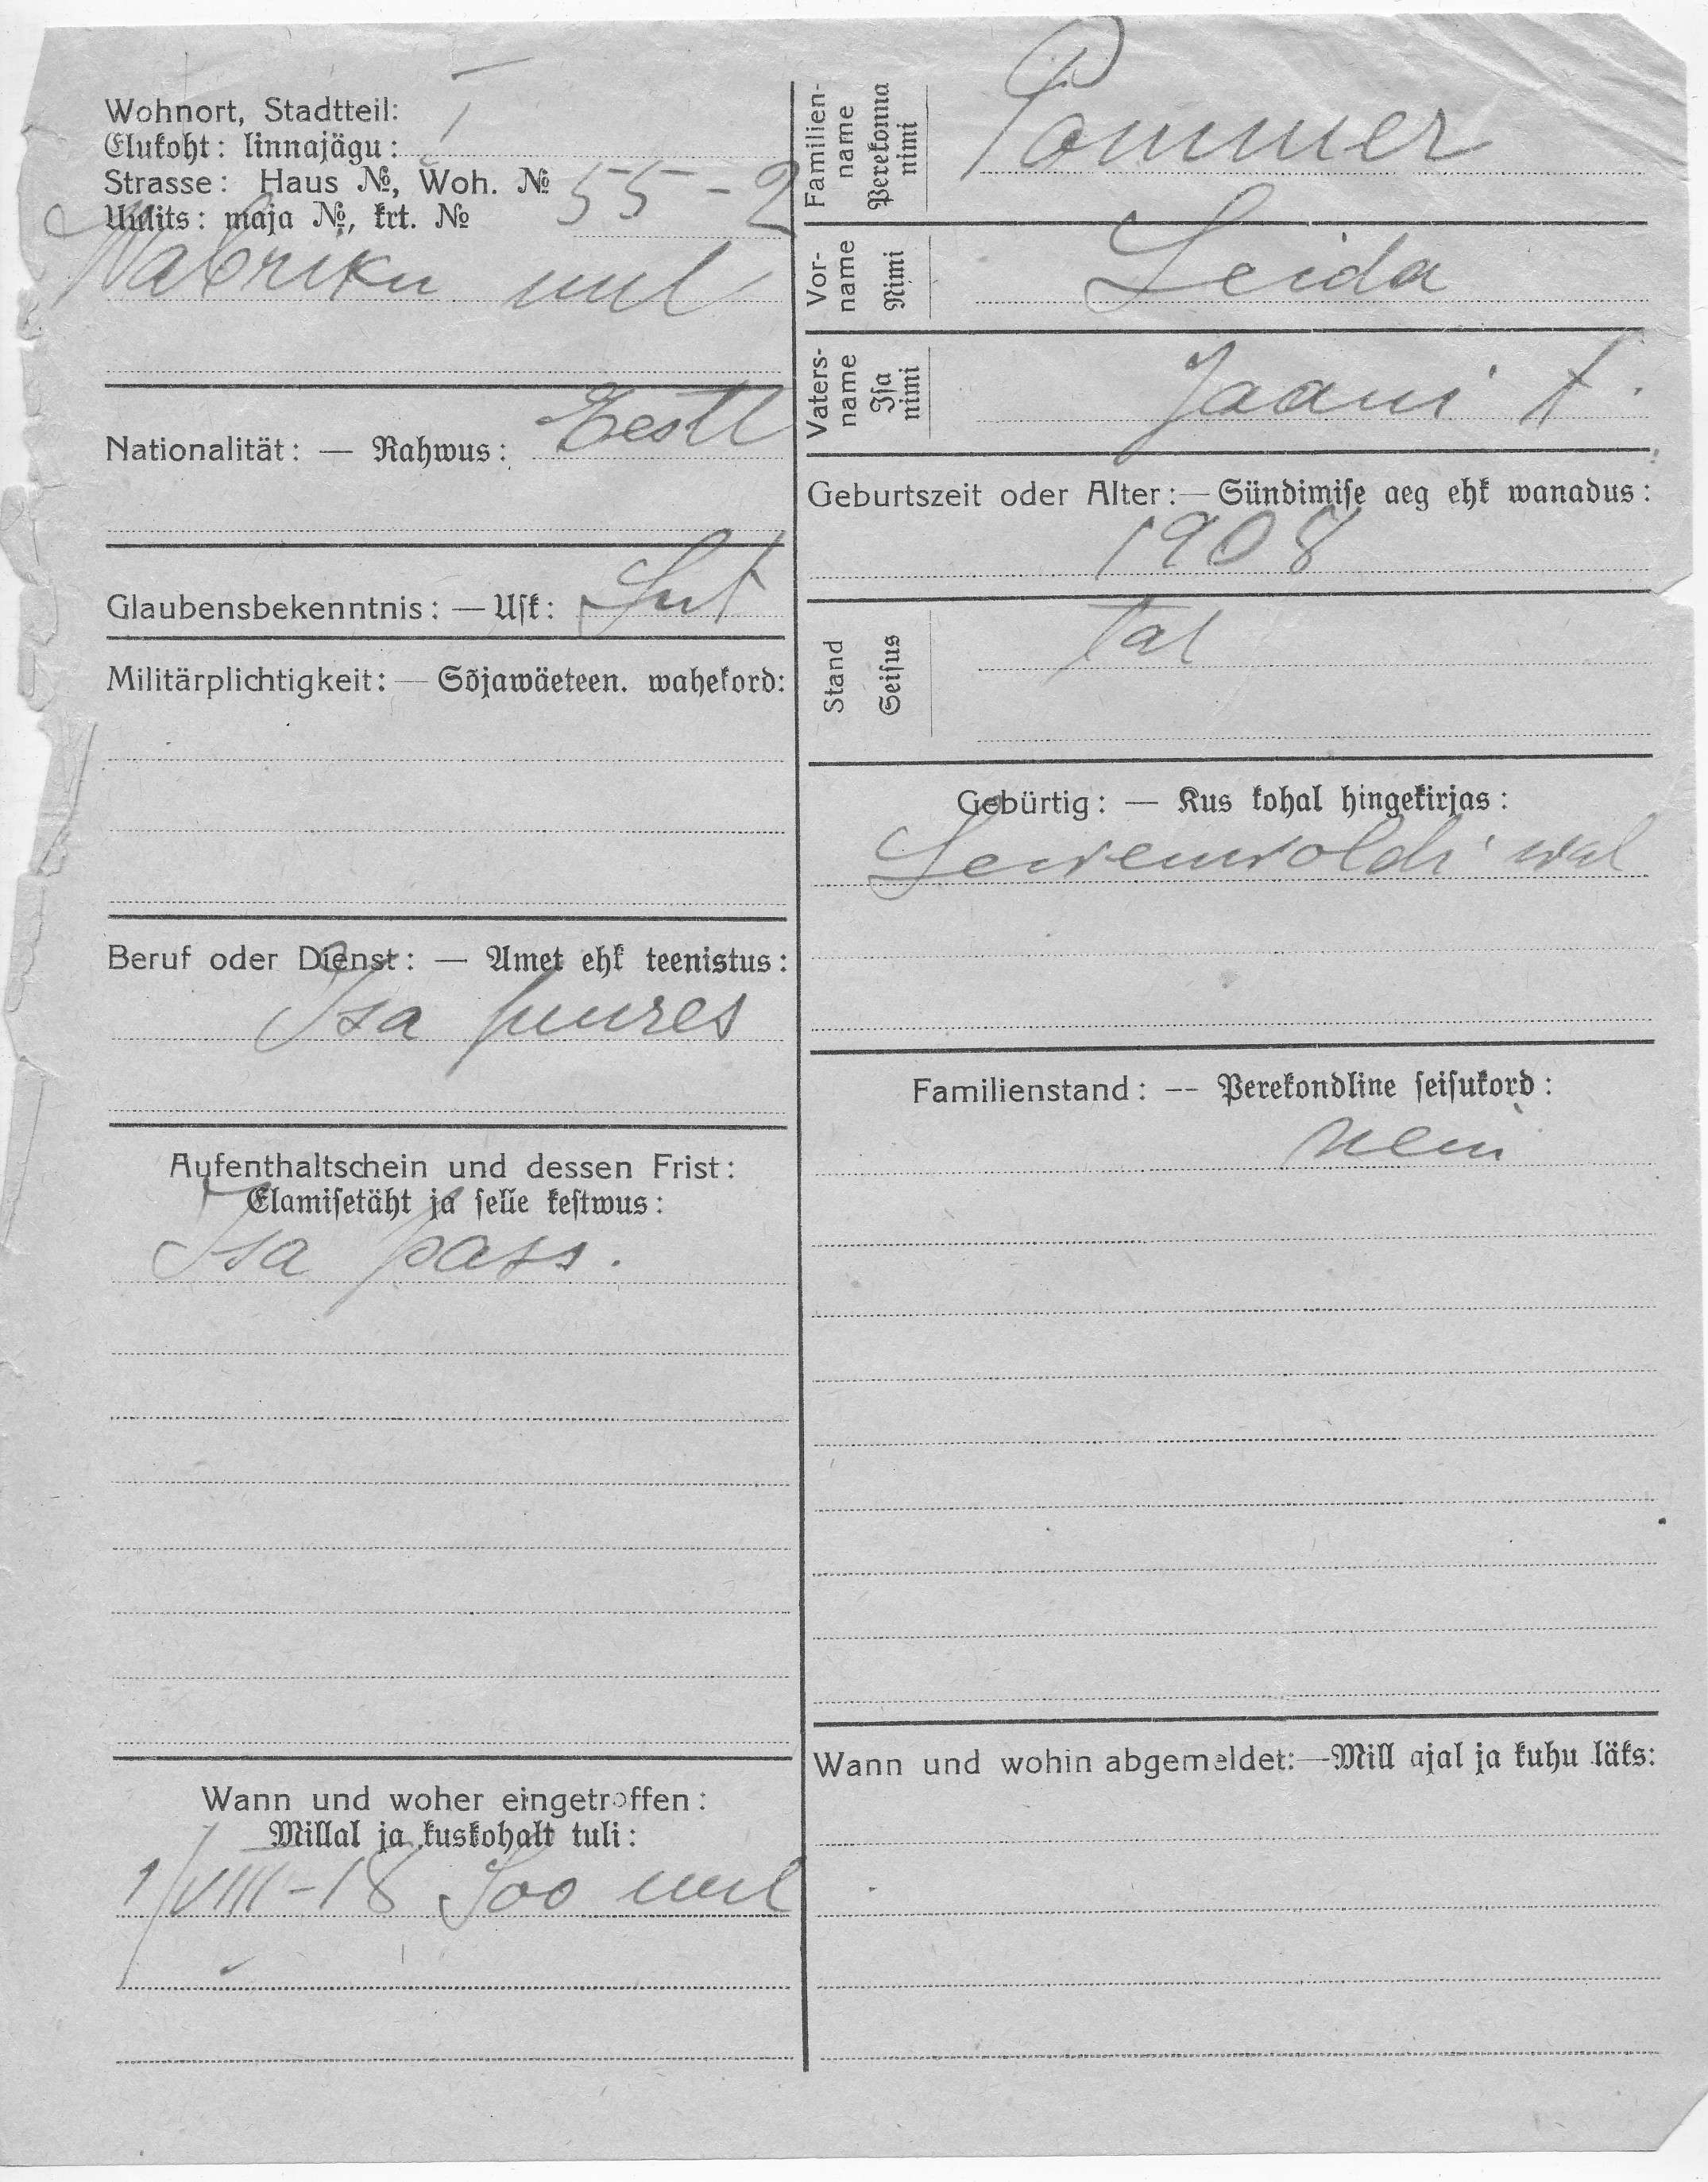 Wohnort, Stadtteil:
Elukoht: linnajägu: I
Strasse: Haus №, Woh. №
Uulits: maja №, krt. № 55-2
Wabriku uul
Nationalität: — Rahwus: Eestl
Glaubensbekenntnis: — Usk: Lut
Militärplichtigkeit: — Sõjawäeteen. wahekord:
Beruf oder Dienst: — Amet ehk teenistus:
Isa juures
Aufenthaltschein und dessen Frist:
Elamisetäht ja selle kestwus:
Isa pass.
Wann und woher eingetroffen:
Millal ja kuskohalt tuli:
1/VIII-18 Soo uul
Familien-
name
Perekonna
nimi
Pommer
Vor-
name
Nimi
Leida
Vaters-
name
Isa
nimi
Jaani t.
Geburtszeit oder Alter: — Sündimise aeg ehk wanadus:
1908
Stand
Seisus
tal
Gebürtig: — Kus kohal hingekirjas:
Lewenwoldi wal
Familienstand: -- Perekondline seisukord:
neiu
Wann und wohin abgemeldet: — Mill ajal ja kuhu läks: